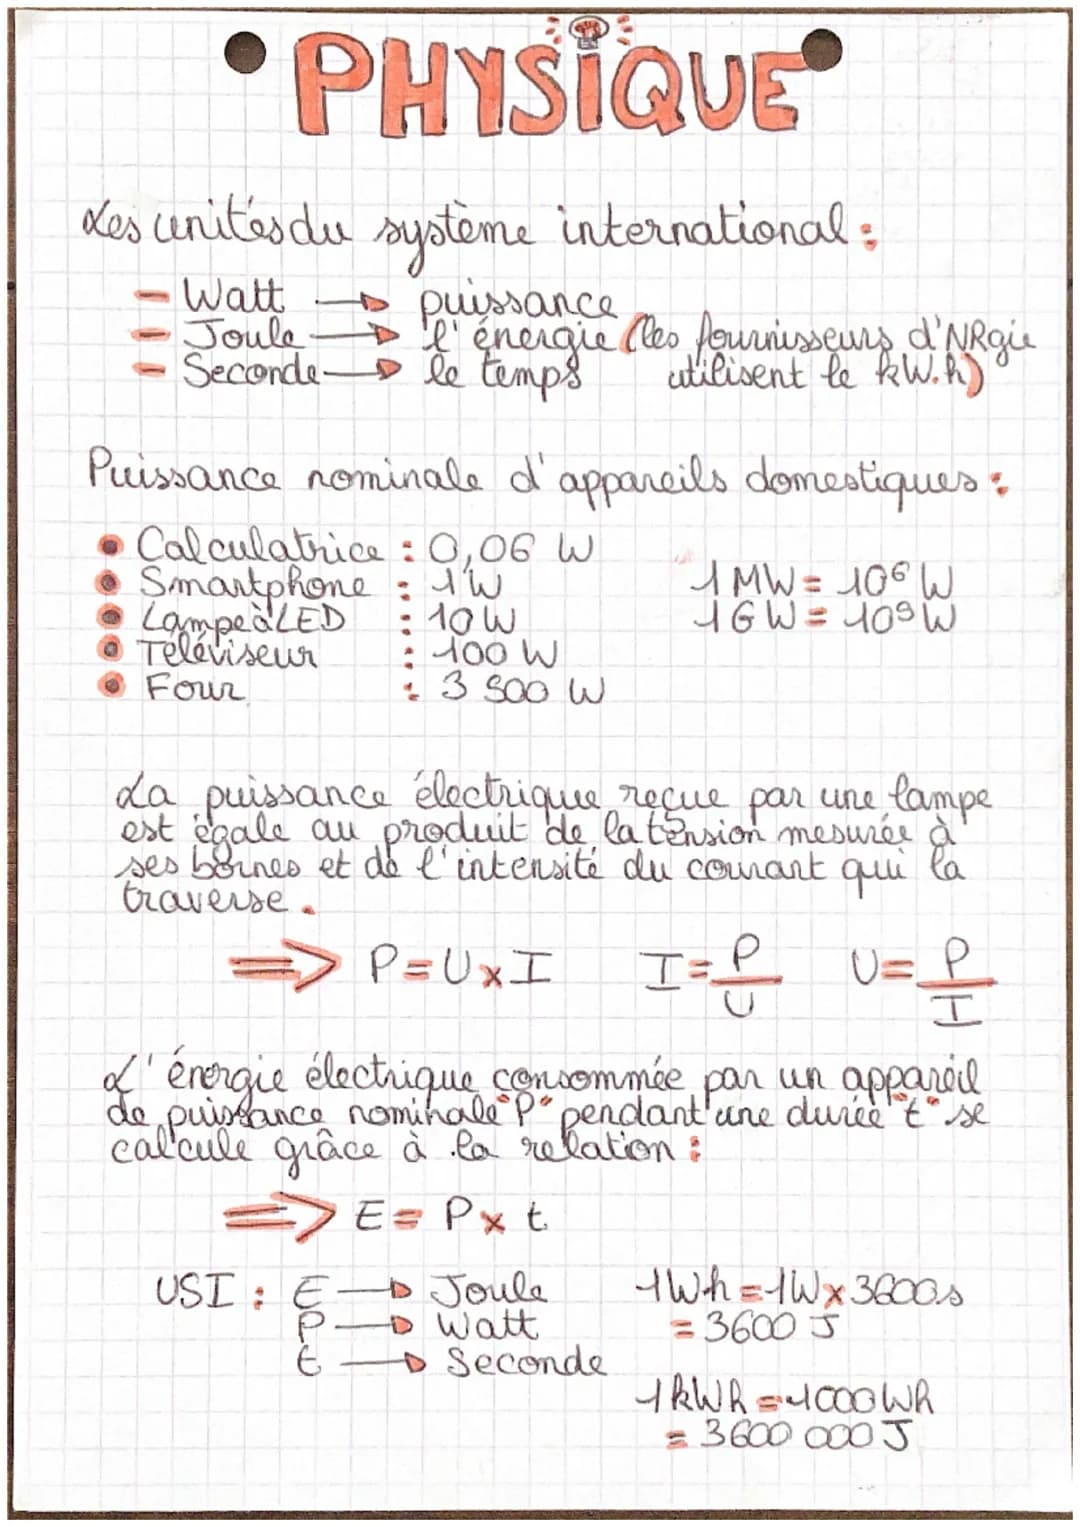 PHYSIQUE
Les unités du système international :
- Watt → puissance
- Joule → l'énergie (les fournisseurs d'NRgie
utilisent le kW.h)
- Seconde → le temps
Puissance nominale d'appareils domestiques :
• Calculatrice : 0,06 W
• Smartphone : 1 W
• Lampe à LED : 10 W
• Téléviseur : 100 W
• Four : 3 500 W
1 MW = 10⁶ W
1 GW = 10⁹ W
La puissance électrique reçue par une lampe
est égale au produit de la tension mesurée à
ses bornes et de l'intensité du courant qui la
traverse.
⇒ P = U x I I = P/U U = P/I
L'énergie électrique consommée par un appareil
de puissance nominale "P" pendant une durée "t" se
calcule grâce à la relation :
⇒ E = P x t
USI : E → Joule
P → Watt
t → Seconde
1Wh = 1W x 3600s
= 3600 J
1kWh = 1000Wh
= 3600 000 J